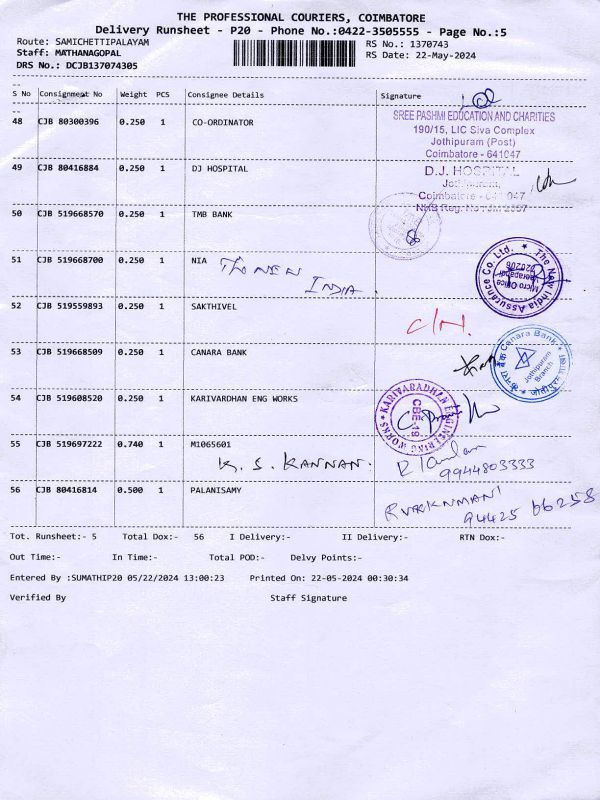 THE PROFESSIONAL COURIERS, COIMBATORE
Delivery Runsheet - P20 - Phone No.:0422-3505555 - Page No.:5
Route: SAMICHETTIPALAYAM
RS No.: 1370743
Staff: MATHANAGOPAL
RS Date: 22-May-2024
DRS No.: DCJB137074305
S No Consignment No Weight PCS Consignee Details Signature
48 CJB 80300396 0.250 1 CO-ORDINATOR
SREE PASHMI EDUCATION AND CHARITIES
190/15, LIC Siva Complex
Jothipuram (Post)
Coimbatore - 641047
49 CJB 80416884 0.250 1 DJ HOSPITAL
D.J. HOSPITAL
Jothipuram,
Coimbatore - 641 047
50 CJB 519668570 0.250 1 TMB BANK
51 CJB 519668700 0.250 1 NIA The NEW
INDIA.
The New India Assurance Co. Ltd.
Micro Office
52 CJB 519559893 0.250 1 SAKTHIVEL
C/H.
53 CJB 519668509 0.250 1 CANARA BANK
Canara Bank
Jothipuram
Branch
54 CJB 519608520 0.250 1 KARIVARDHAN ENG WORKS
KARIVARADHAN ENGINEERING WORKS
CBE-19
55 CJB 519697222 0.740 1 M1065601
K. S. KANNAN.
9944803333
56 CJB 80416814 0.500 1 PALANISAMY
94425 66258
Tot. Runsheet:- 5 Total Dox:- 56 I Delivery:- II Delivery:- RTN Dox:-
Out Time:- In Time:- Total POD:- Delvy Points:-
Entered By :SUMATHIP20 05/22/2024 13:00:23 Printed On: 22-05-2024 00:30:34
Verified By Staff Signature